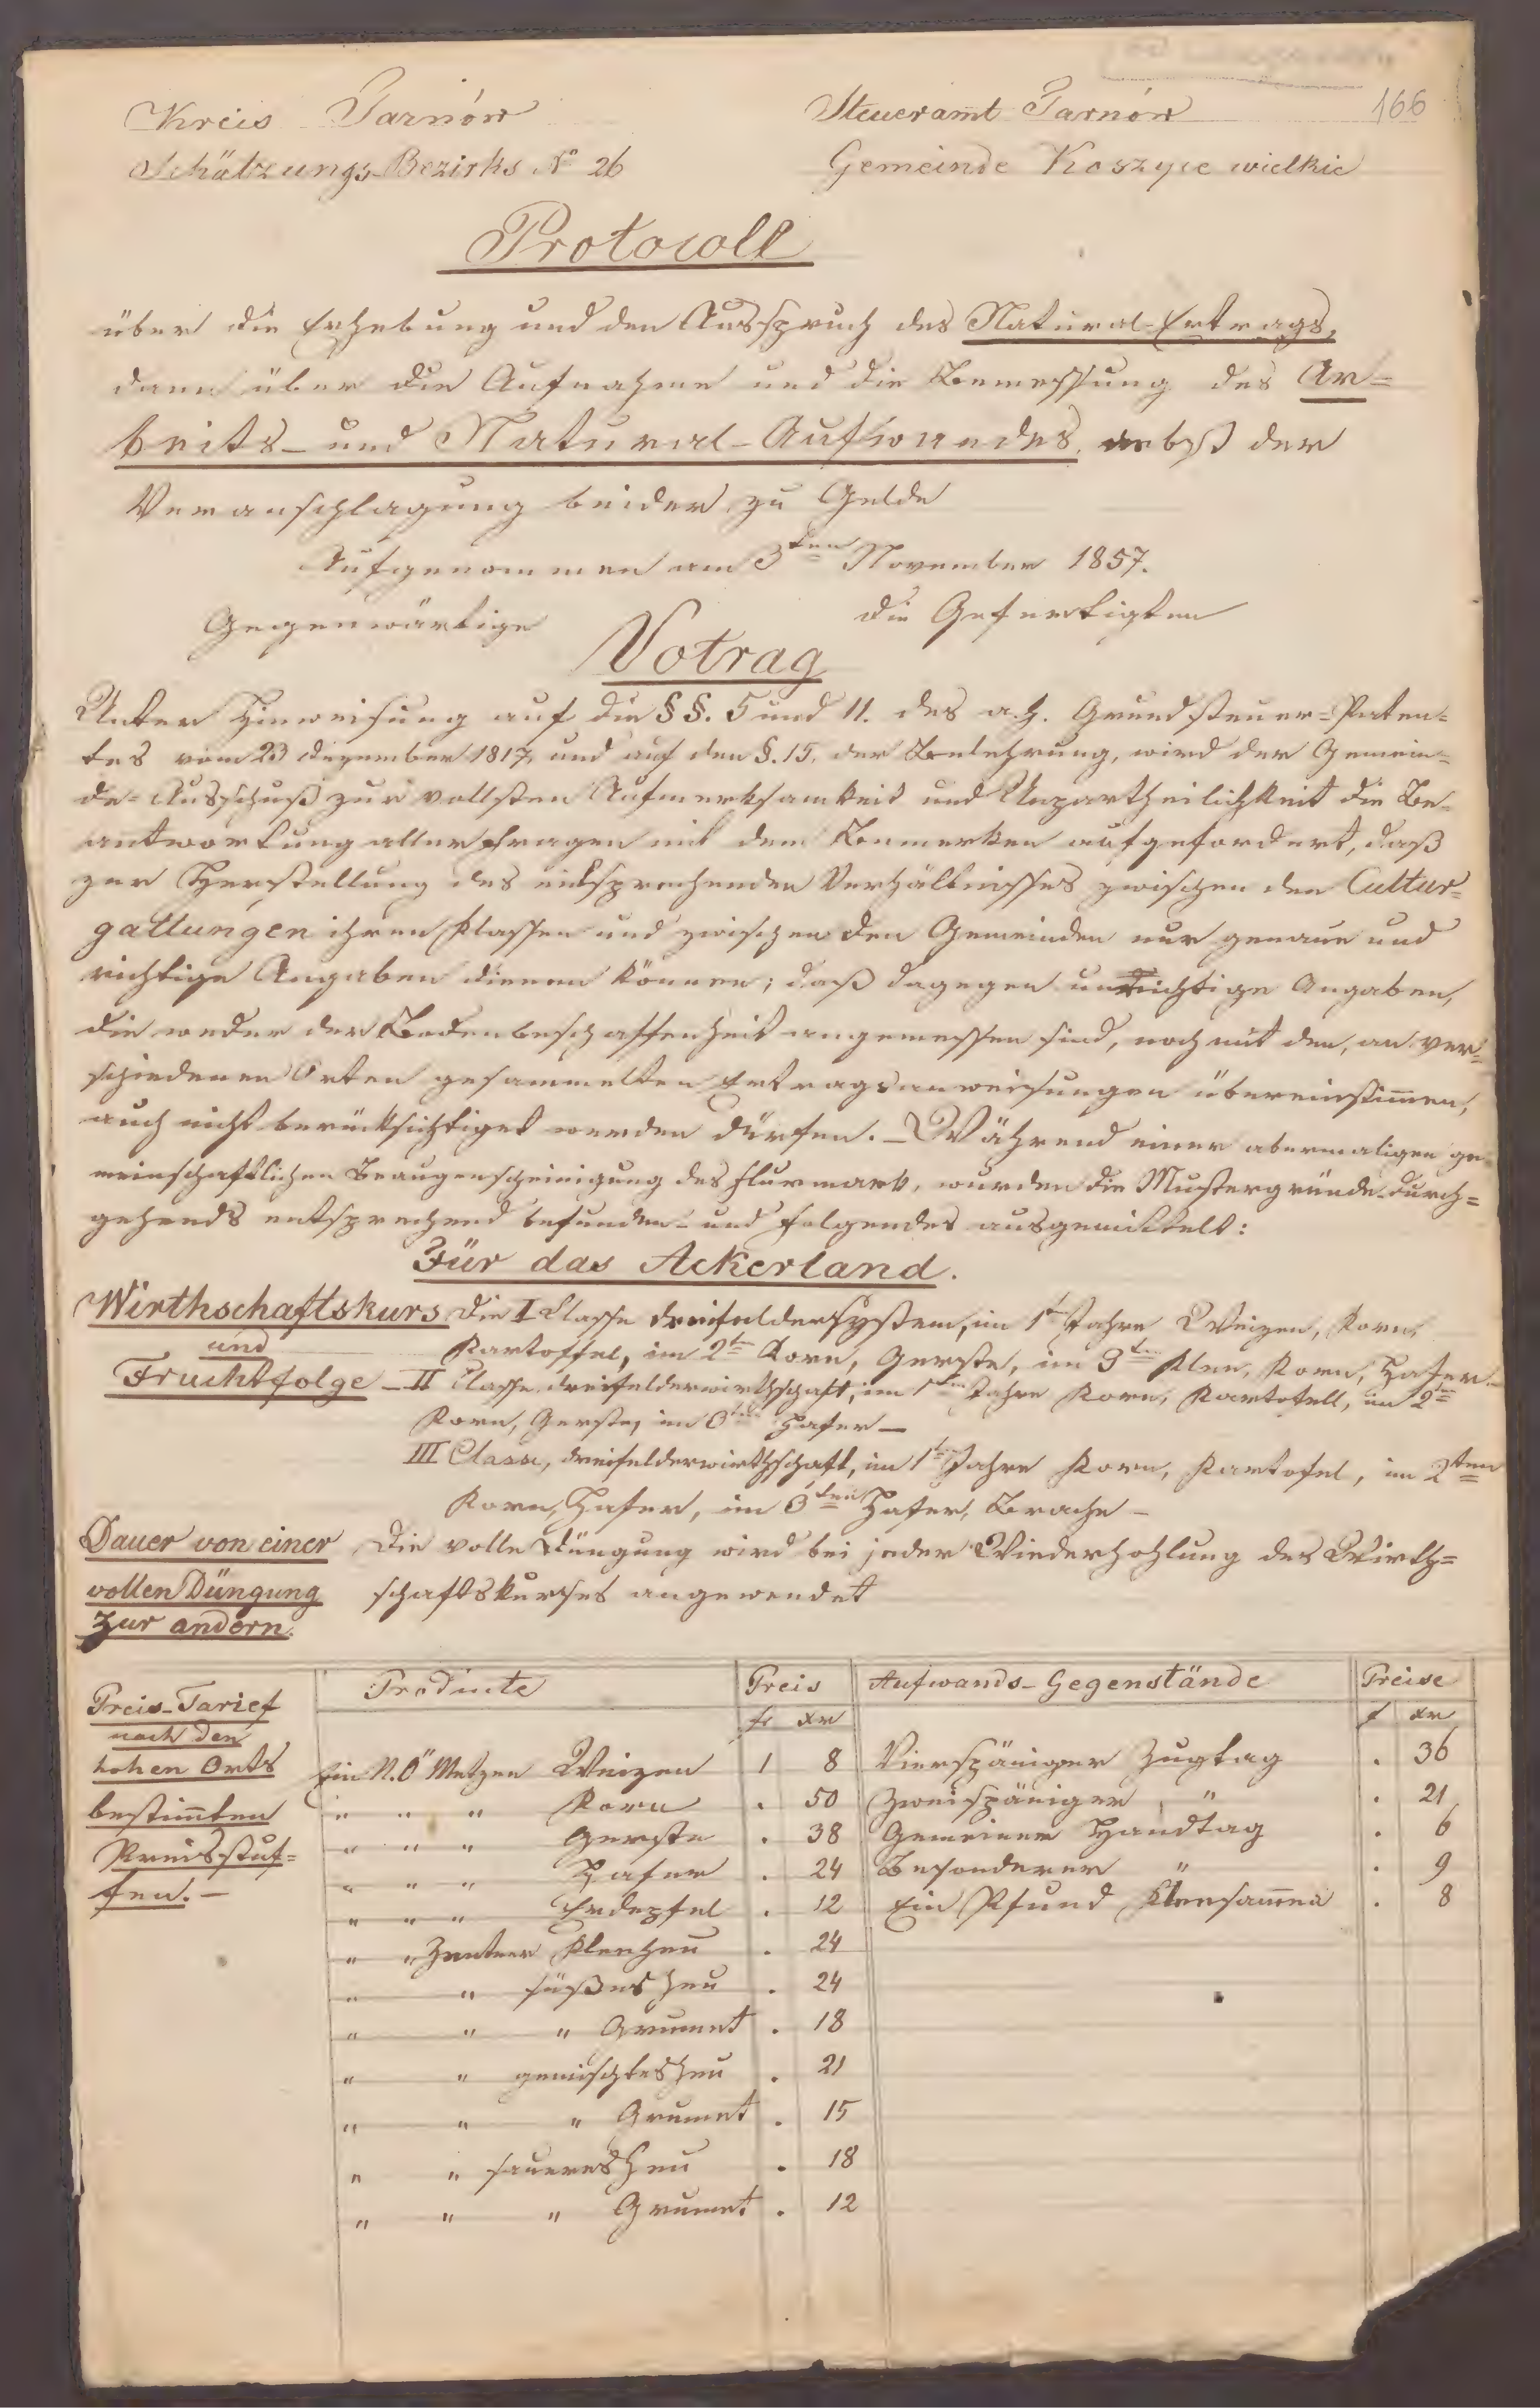 166
Kreis Tarnów
Steueramt Tarnów
Schätzungs-Bezirks No 26
Gemeinde Koszyce wielkie
Protocoll
über die Erhebung und den Ausspruch des Natural-Ertrags,
dann über die Aufnahme und die Bemessung des Ar=
beits- und Natural-Aufwandes, nebst der
Veranschlagung beider zu Gelde
Aufgenommen am 3ten November 1857.
Gegenwärtige
die Gefertigten
Votrag
Unter Hinweisung auf die §§. 5 und 11. des a.h. Grundsteuer-Paten=
tes vom 23 Dezember 1817, und auf den §. 15. der Belehrung, wird der Gemein=
de-Ausschuß zur vollsten Aufmerksamkeit und Unpartheilichkeit die Be=
antwortung aller Fragen mit dem Bemerken aufgefordert, daß
zur Herstellung des entsprechenden Verhältnisses zwischen den Cultur=
gattungen ihren Klassen und zwischen den Gemeinden nur genaue und
richtige Angaben dienen können; daß dagegen unrichtige Angaben,
die weder der Bodenbeschaffenheit angemessen sind, noch mit den, an ver=
schiedenen Orten gesammelten Ertragsanweisungen übereinstimmen,
auch nicht berücksichtiget werden dürfen. – Während einer abermaligen ge=
meinschaftlichen Beaugenscheinigung des Flurmark, wurden die Mustergründe durch=
gehends entsprechend befunden und folgendes ausgemittelt:
Für das Ackerland.
Wirthschaftskurs Die I Classe Dreifeldersystem, im 1ten Jahre Weizen, Korn,
und
Kartoffel, im 2ten Korn, Gerste, im 3ten Klee, Korn, Hafer –
Fruchtfolge – II Classe Dreifelderwirthschaft, im 1ten Jahre Korn, Kartofell, im 2ten
Korn, Gerste, im 3ten Hafer –
III Classe, Dreifelderwirthschaft, im 1ten Jahre Korn, Kartofel, im 2ten
Korn, Hafer, im 3ten Hafer, Brache –
Dauer von einer Die volle Düngung wird bei jeder Wiederhohlung des Wirth=
vollen Düngung schaftskurses angewendet
zur andern.
Producte Preis Aufwands-Gegenstände Preise
Preis-Tarief
nach den
hohen Orts
bestimmten
Preisstuf=
fen. –
fr xr f xr
Ein N.Ö. Metzen Weizen 1 8 Vierspäniger Zugtag . 36
" " " Korn . 50 Zweispäniger " . 21
" " " Gerste . 38 Gemeiner Handtag . 6
" " " Hafer . 24 Besonderer " . 9
" " " Erdepfel . 12 Ein Pfund Kleesamen . 8
" " Zentner Kleeheu . 24
" " süßes Heu . 24
" " " Grumet . 18
" " gemischtes Heu . 21
" " " Grumet . 15
" " saueres Heu . 18
" " " Grumet . 12